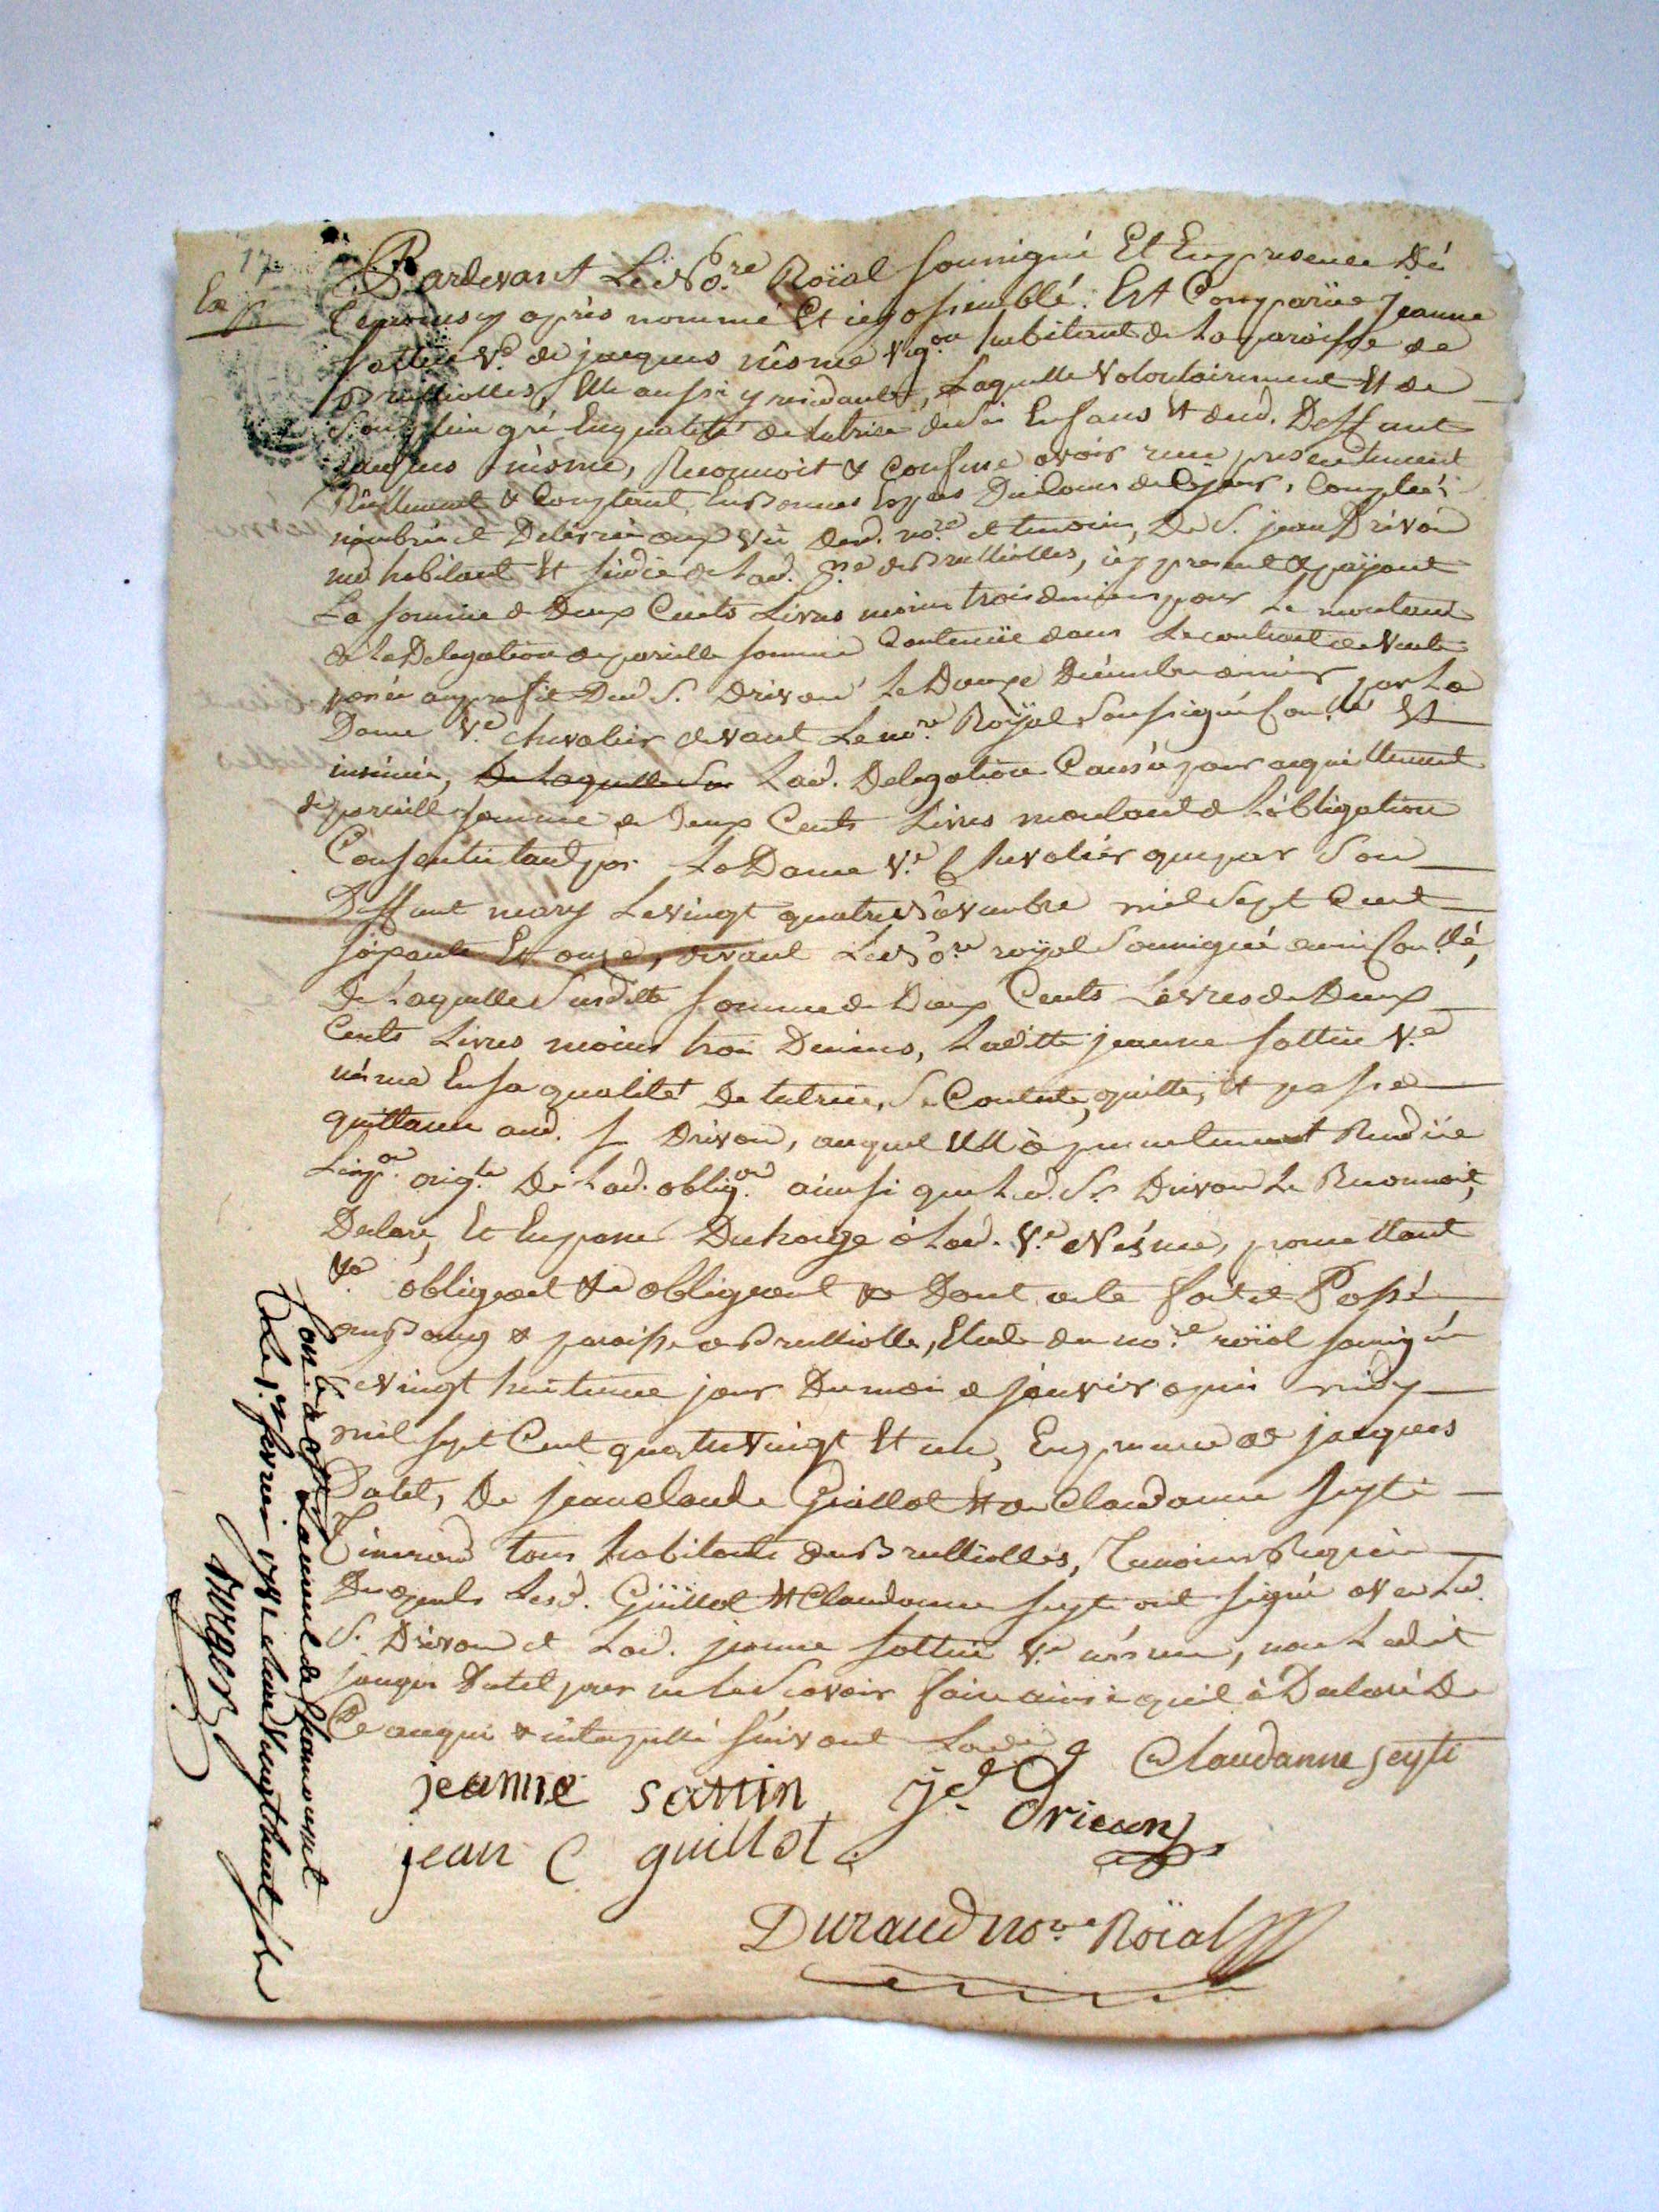 Pardevant Le No.re Roïal soussigné Et En presence Dé
Temoins cy après nommé Et icy assemblé. Est Comparüe Jeanne
Sottin V.e de jacques nésme vig.on habitant de La paroisse de
Brulliolles, Elle aussi y residante, Laquelle Volontairement Et de
Son plein gré En qualité de tutrice de Ses Enfans Et dud. Deffunt
jacques nésme, Reconnoit & Confesse avoir reçu presentement
Réellement & Comptant En Bonnes Especes Du Cours de Ce jour, Comptéé
nombréé et Delivréé au Vü dud. no.re et temoins, De S. jean Drivon
md habitant Et sindic de Lad. p.sse de Brulliolles, icy present & payant
La somme de Deux Cents Livres moins trois deniers pour Le montant
de La Delegation de pareille somme Contenüe dans Le contract de Vente
passé au profit Dud S. Drivon Le Douze Décembre dernier par La
Dame V.e chevalier devant Le no.re Roÿal Soussigné Con.llé Et
insinüé, De Laquelle Son Lad. Delegation Causée pour acquittement
de pareille somme de Deux Cents Livres montant de L'obligation
Consentie tant par La Dame V.e Chevalier que par Son
Deffunt mary Le vingt quatre Novembre mil Sept Cent
soixante Et onze, devant Le No.re royal Soussigné aussi Con.llé,
De Laquelle Susditte Somme de Deux Cents Livres de Deux
Cents Livres moins trois Deniers, Laditte jeanne Sottin V.e
nésme En Sa qualité De tutrice, Se Contente, quitte, Et passe
quittance aud. S. Drivon, auquel Elle à presentement Rendüe
L'exp.on orig.le De Lad. oblig.on ainsi que Led. S. Drivon Le Reconnoit,
Declare, Et En passe Decharge à Lad. V.e Nésme, promettant
&a obligeant &a obligeant &a Dont acte fait et Passé
au Bourg & paroisse de Brulliolle, Etude du no.re roïal soussigné
Le vingt huitieme jour Du mois de janvier après midy
mil sept Cent quatre Vingt Et un, En presence de jacques
Datel, De jean claude Guillot Et de Claudanne Seyti
Timonod tous habitants de Brulliolles, Temoins Requis
Desquels Lesd. Guillot Et Claudanne Seyti ont signé avec Led.
S. Drivon et Lad. jeanne Sottin V.e nésme, non Ledit
jacques Datel pour ne Le Scavoir faire ainsi qu'il à Declaré De
Ce enquis & interpellé suivant Lord.
jeanne sottin jd Drivon Claudanne Seyti
jean C guillot
Durand no.re Roïal
Con.lé à Laurent de Chamousset
Ce 1.er fevrier 1781 vingt huit sols